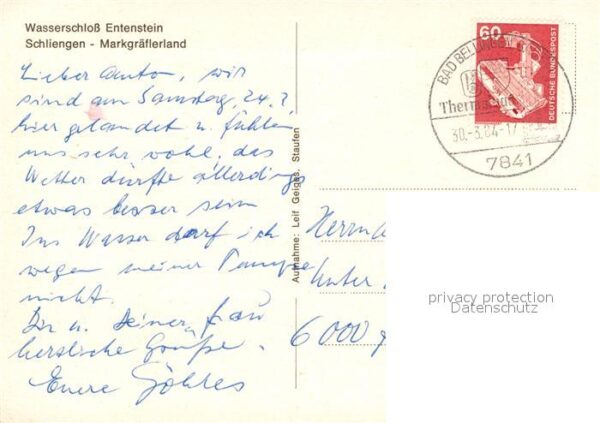 Wasserschloß Entenstein
Schliengen - Markgräflerland
Lieber Anton, wir
sind am Samstag, 24.3.
hier gelandet u. fühlen
uns sehr wohl, das
Wetter dürfte allerdings
etwas besser sein
Ins Wasser darf ich
wegen meiner
nicht.
Dir u. Deiner Frau
herzliche Grüße.
Eure
Aufnahme: Leif Geiges, Staufen
60
DEUTSCHE BUNDESPOST
BAD BELLINGEN
Therm
30.-3.84-17
7841
Herrn
Unter
6000
privacy protection
Datenschutz